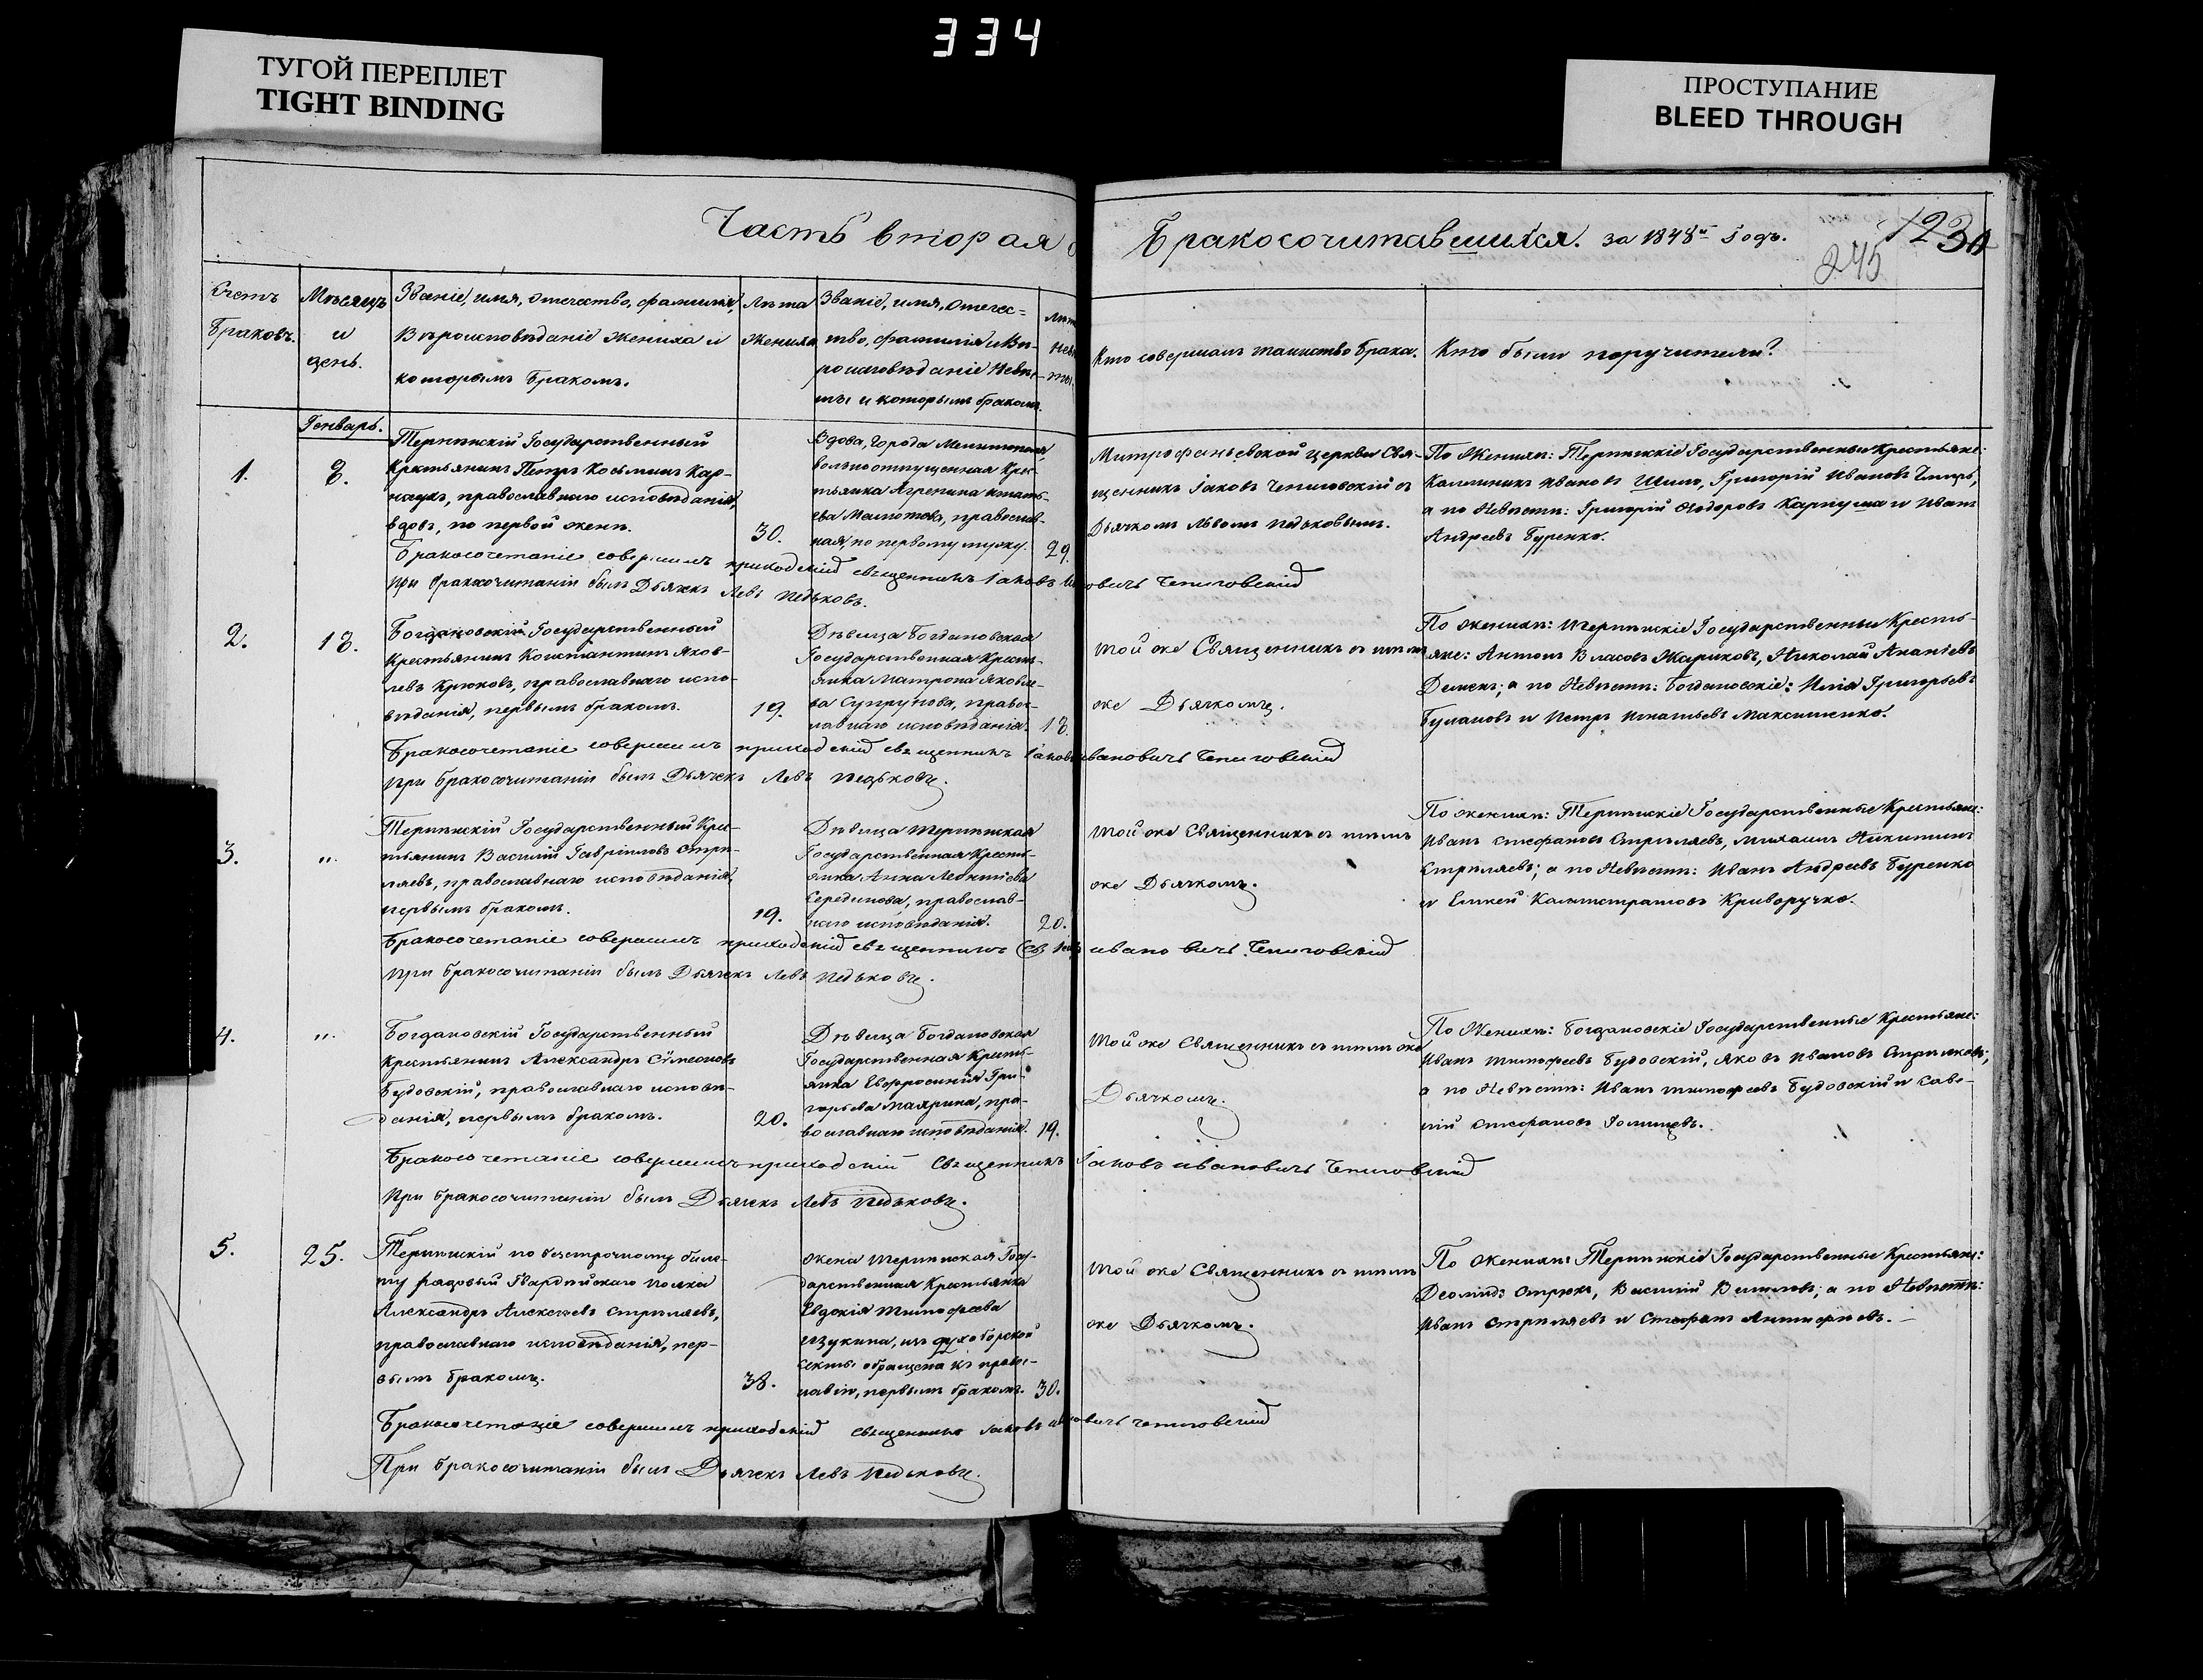 334
ТУГОЙ ПЕРЕПЛЕТ
TIGHT BINDING
ПРОСТУПАНИЕ
BLEED THROUGH
Часть вторая о
Бракосочитавшихся. за 1848й Годъ.
1230
245
Счетъ
Браковъ.
Мѣсяцъ
и
день.
Званіе, имя, отечество, фамилія,
Вѣроисповѣданіе Жениха и
которымъ бракомъ.
Лѣта
Жениха
Званіе, имя, отечес=
тво, фамилія и Вѣ-
роисповѣданіе Невѣ-
сты и которымъ бракомъ.
Кто совершалъ таинство брака.
Кто были поручители?
Генварь.
1.
8.
Терпѣнскій Государственный
Крестьянинъ Петръ Косьминъ Кар-
наухъ, православнаго исповѣданія,
вдовъ, по первой женѣ.
30.
Вдова, города Мелитополя
вольноотпущенная Крес-
тьянка Агрепина
православ-
ная, по первому мужу.
29.
Митрофаньевской церкви Свя-
щенникъ Іаковъ Чепиговскій съ
Дьячкомъ Львомъ Педьковымъ.
По Женихѣ: Терпѣнскіе Государственные Крестьяне:
Калинникъ Ивановъ Шило, Григорій Ивановъ
а по Невѣстѣ: Григорій Ѳеодоровъ Карпуша и Иванъ
Андреевъ Буренко.
Бракосочетаніе совершилъ приходскій священникъ Іаковъ Ивановичъ Чепиговскій
при бракосочитаніи былъ Дьячекъ Левъ Педьковъ.
2.
18.
Богдановскій Государственный
Крестьянинъ Константинъ Яков-
левъ Крюковъ, православнаго испо-
вѣданія, первымъ бракомъ.
19.
Дѣвица Богдановская
Государственная Кресть-
янка Матрона Яковле-
ва Супрунова, правос-
лавнаго исповѣданія.
18.
Той же Священникъ съ тѣмъ
же Дьячкомъ.
По женихѣ: Терпѣнскіе Государственные Кресть-
яне: Антонъ Власовъ Жариковъ, Николай Ананіевъ
а по Невѣстѣ: Богдановскіе: Илія Григорьевъ
Булановъ и Петръ Игнатьевъ Максименко.
Бракосочетаніе совершилъ приходскій священникъ Іаковъ Ивановичъ Чепиговскій
при бракосочитаніи былъ Дьячекъ Левъ Педьковъ.
3.
"
Терпѣнскій Государственный Крес-
тьянинъ Василій Гавріиловъ Стрѣ-
ляевъ, православнаго исповѣданія,
первымъ бракомъ.
19.
Дѣвица Терпѣнская
Государственная Кресть-
янка Анна Леонтіева
Середихова, православ-
наго исповѣданія.
20.
Той же Священникъ съ тѣмъ
же Дьячкомъ.
По женихѣ: Терпѣнскіе Государственные Крестьяне:
Иванъ Стефановъ Стрѣляевъ, Михаилъ Никитинъ
Стрѣляевъ; а по Невѣстѣ: Иванъ Андреевъ Буренко
и Калистратовъ Криворучко.
Бракосочетаніе совершилъ приходскій священникъ Ивановичъ Чепиговскій
при бракосочитаніи былъ Дьячекъ Левъ Педьковъ.
4.
"
Богдановскій Государственный
Крестьянинъ Александръ Сѵмеоновъ
Будовскій, православнаго исповѣ-
данія, первымъ бракомъ.
20.
Дѣвица Богдановская
Государственная Кресть-
янка Евфросинія Гри-
горьева Маярина, пра-
вославнаго исповѣданія.
19.
Той же Священникъ съ тѣмъ же
Дьячкомъ.
По Женихѣ: Богдановскіе Государственные Крестьяне:
Иванъ Тимофеевъ Будовскій, Яковъ Ивановъ
а по Невѣстѣ: Иванъ Тимофеевъ Будовскій и Саве-
лій Стефановъ
Бракосочетаніе совершилъ приходскій Священникъ Іаковъ Ивановичъ Чепиговскій
При бракосочитаніи былъ Дьячекъ Левъ Педьковъ.
5.
25.
Терпѣнскій по безсрочному биле-
ту рядовый Гвардейскаго полка
Александръ Алексѣевъ Стрѣляевъ,
православнаго исповѣданія, пер-
вымъ бракомъ.
38.
Жена Терпѣнская Госу-
дарственная Крестьянка
Евдокія Тимофеева
изъ духоборской
секты обращена къ правос-
лавію, первымъ бракомъ.
30.
Той же Священникъ съ тѣмъ
же Дьячкомъ.
По Женихѣ: Терпѣнскіе Государственные Крестьяне:
Василій а по Невѣстѣ:
Иванъ Стрѣляевъ и Стефанъ
Бракосочетаніе совершилъ приходскій священникъ Іаковъ Ивановичъ Чепиговскій
При бракосочитаніи былъ Дьячекъ Левъ Педьковъ.